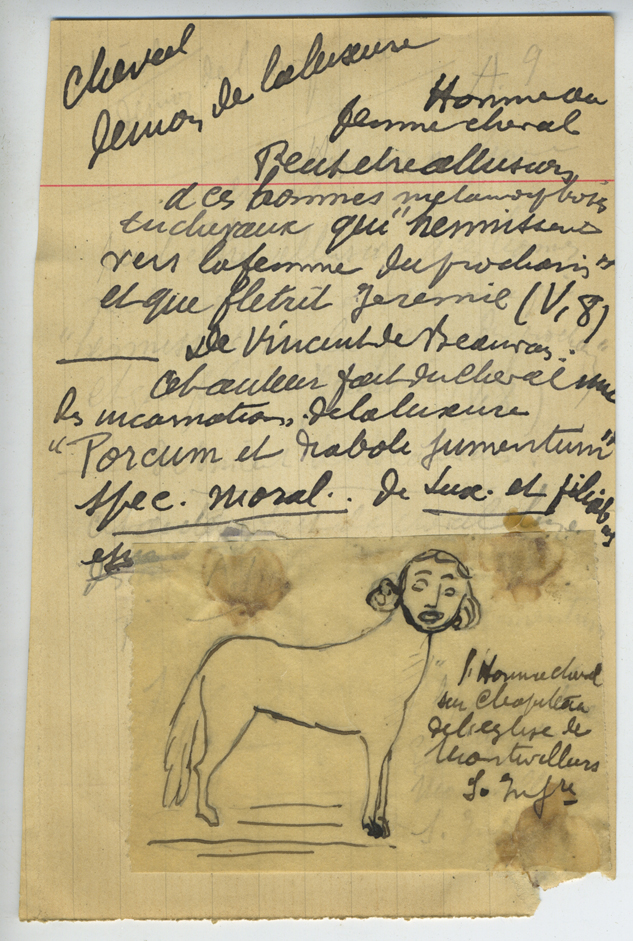 Cheval
demon de la luxure
A 9
Homme ou
femme cheval
Peut etre allusions
des hommes metamorphosés
en chevaux qui "hennissent
vers la femme du prochain"
et que fletrit Jeremie (V, 8)
De Vincent de Beauvais :
Cet auteur fait du cheval une
des incarnations de la luxure
"Porcum et diaboli jumentum"
spec. moral. De Lux. et filiabus
ejus
l'Homme cheval
sur chapiteau
de l'eglise de
Montivilliers
S. Infre